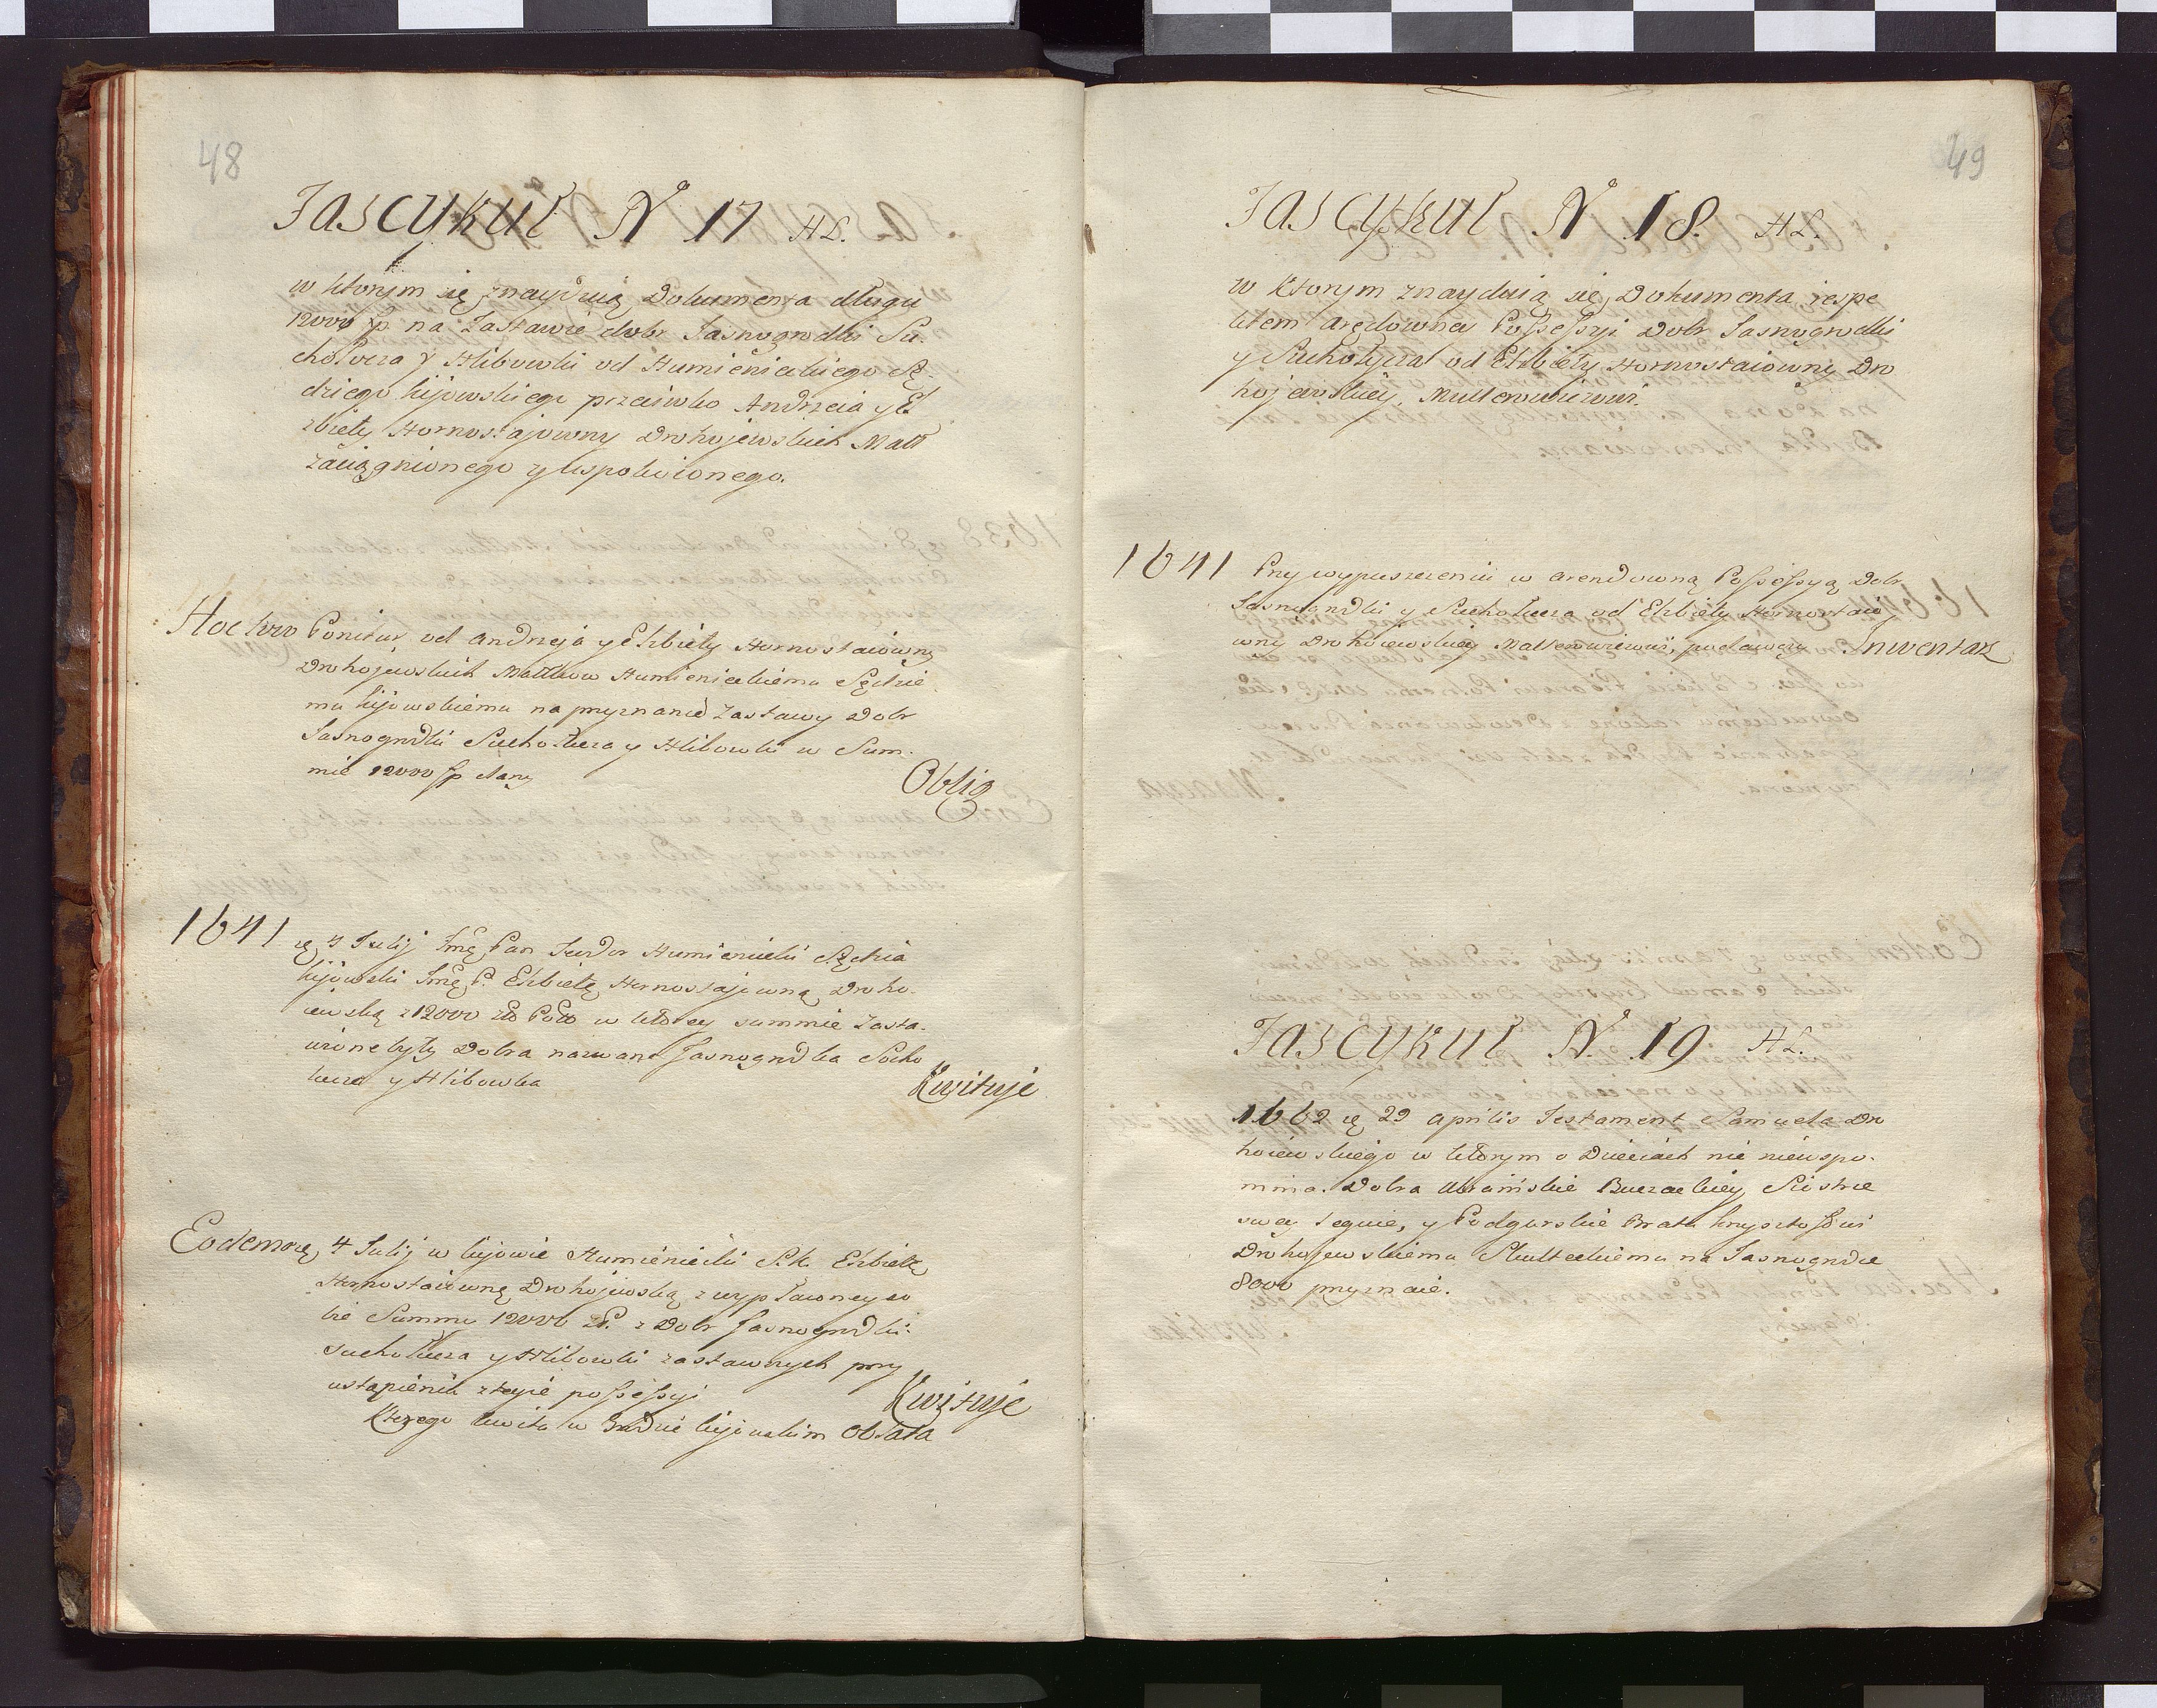 48
Fascykuł N 17 HL.
w ktorym się znayduią Dokumenta długu
12000 zp. na Zastawie dobr Jasnogrodki Su-
chołucza y Hlibowki od Humienieckiego Sę-
dziego kijowskiego przeciwko Andrzeia y El
zbiety Hornostajowny Drohojewskich Małł
zaciągnionego y uspokoionego.
Hoc loco Ponitur od Andrzeja y Elzbiety Hornostaiowny
Drohojewskich Małłkow Humienieckiemu Sędzie
mu kijowskiemu na przyznanie Zastawy Dobr
Jasnogrodki Suchołucza y Hlibowki w Sum-
mie 12000 zp dany
Oblig
1641 4 Julij Jmę Pan Humieniecki Sędzia
kijowski Jmę P. Elzbietę Hornostajowną Droho-
iewską z 12000 zło Pol w ktorey summie Zasta-
wione były Dobra nazwane Jasnogrodka Sucho
łucza y Hlibowka
Kwituje
Eodem 4 Julij w kijowie Humieniecki S. k. Elzbietę
Hornostaiowną Drohojewską z wypłaconey so
bie Summy 12000 zł. z Dobr Jasnogrodki
Suchołucza y Hlibowki zastawnych przy
ustąpieniu z teyże possessyi
Kwituje
Ktorego kwitu w Grodzie kijowskim Oblata
49
Fascykuł N 18. HL.
w Ktorym znayduią się Dokumenta respe
ktem arędowney Possessyi Dobr Jasnogrodki
y Suchołucza od Elzbiety Hornostaiowny Dro
hojewskiey,
1641 Przy wypuszczeniu w arendowną Possessyą Dobr
Jasnogrodki y Suchołucza od Elzbiety Hornostaio
wny Drohoiewskiey podawczy Inwentarz
Fascykuł N. 19 HL.
1662 29 Aprilis Testament Samuela Dro
hoiewskiego w ktorym o Dzieciach nic niewspo-
mina. Dobra Ukrainskie Buczackiey Siostrze
swey leguie, y Podgurskie Bratu krysztofowi
Drohojewskiemu na Jasnogrodce
8000 przyznaie.